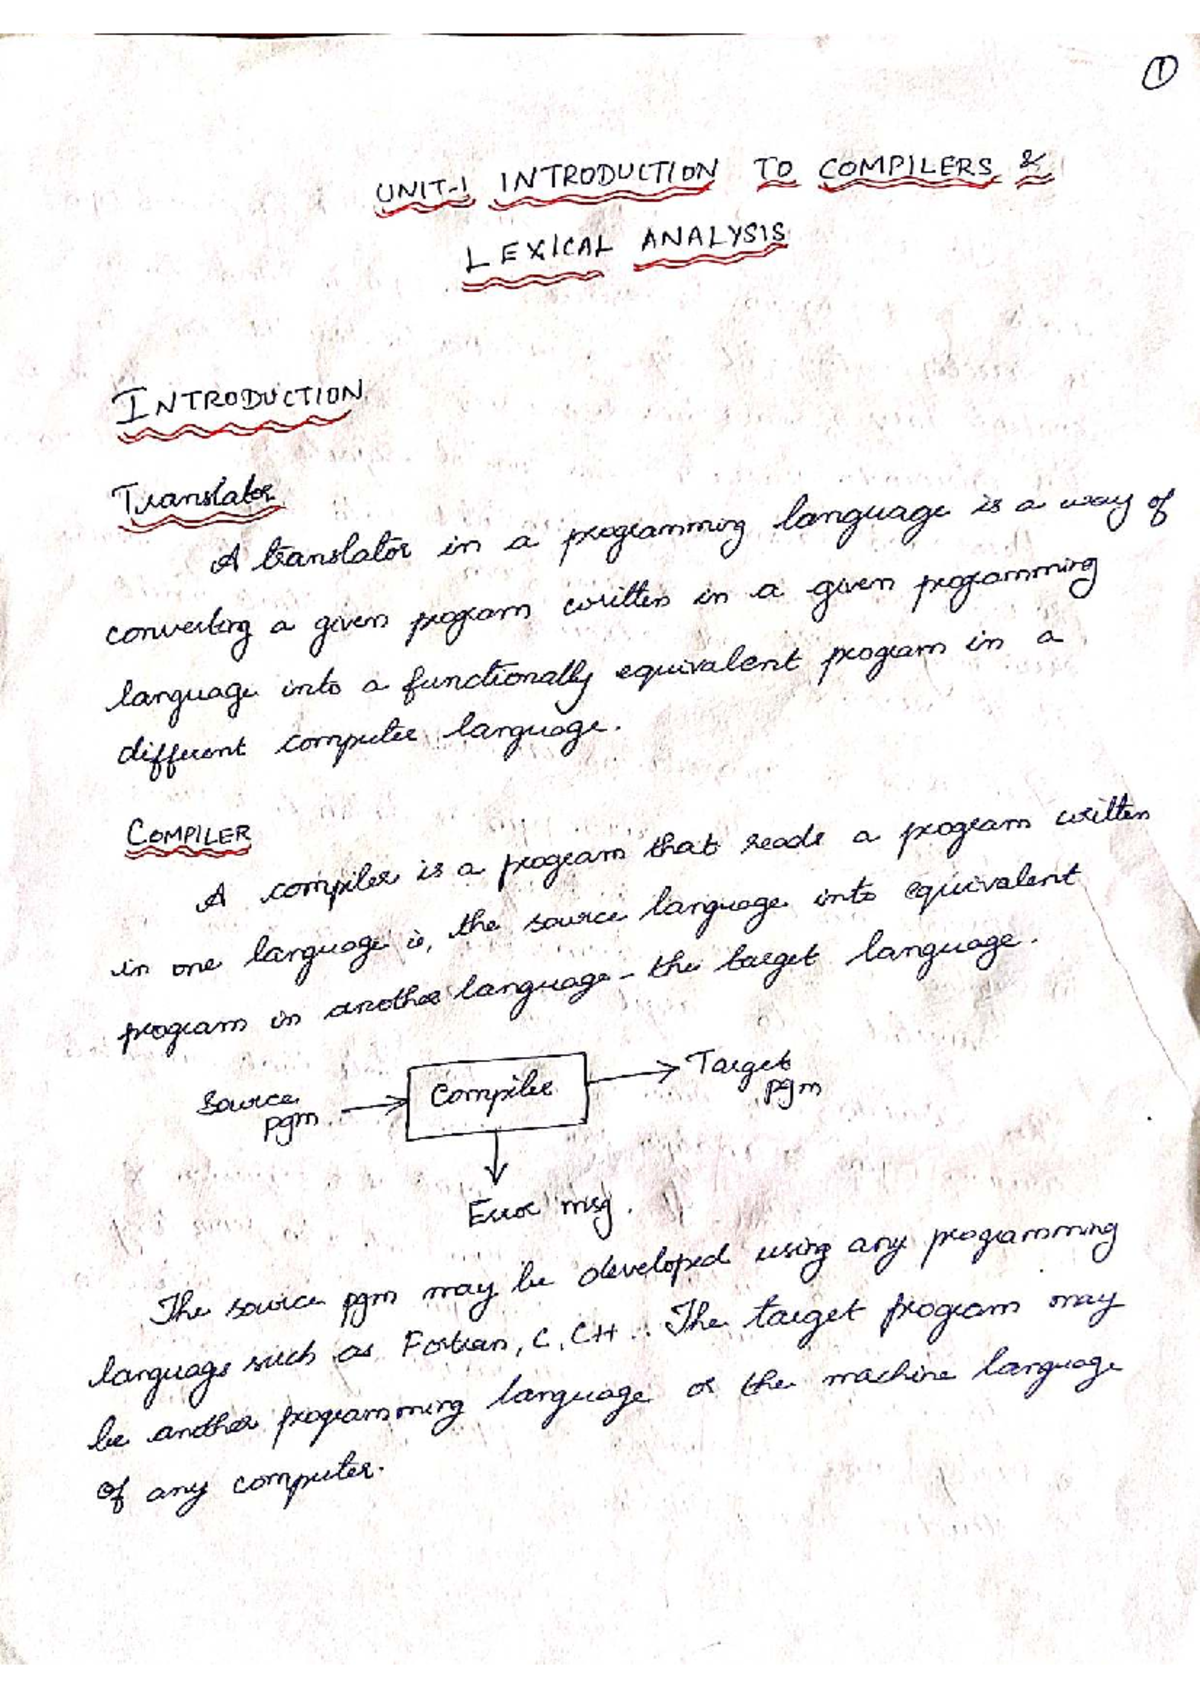 1
UNIT-1 INTRODUCTION TO COMPILERS &
LEXICAL ANALYSIS
INTRODUCTION
Translator
A translator in a programming language is a way of
converting a given program written in a given programming
language into a functionally equivalent program in a
different computer language.
COMPILER
A compiler is a program that reads a program written
in one language ie, the source language into equivalent
program in another language - the target language.
Source pgm
Compiler
Target pgm
Error msg.
The source pgm may be developed using any programming
language such as Fortran, C, C++.. The target program may
be another programming language or the machine language
of any computer.